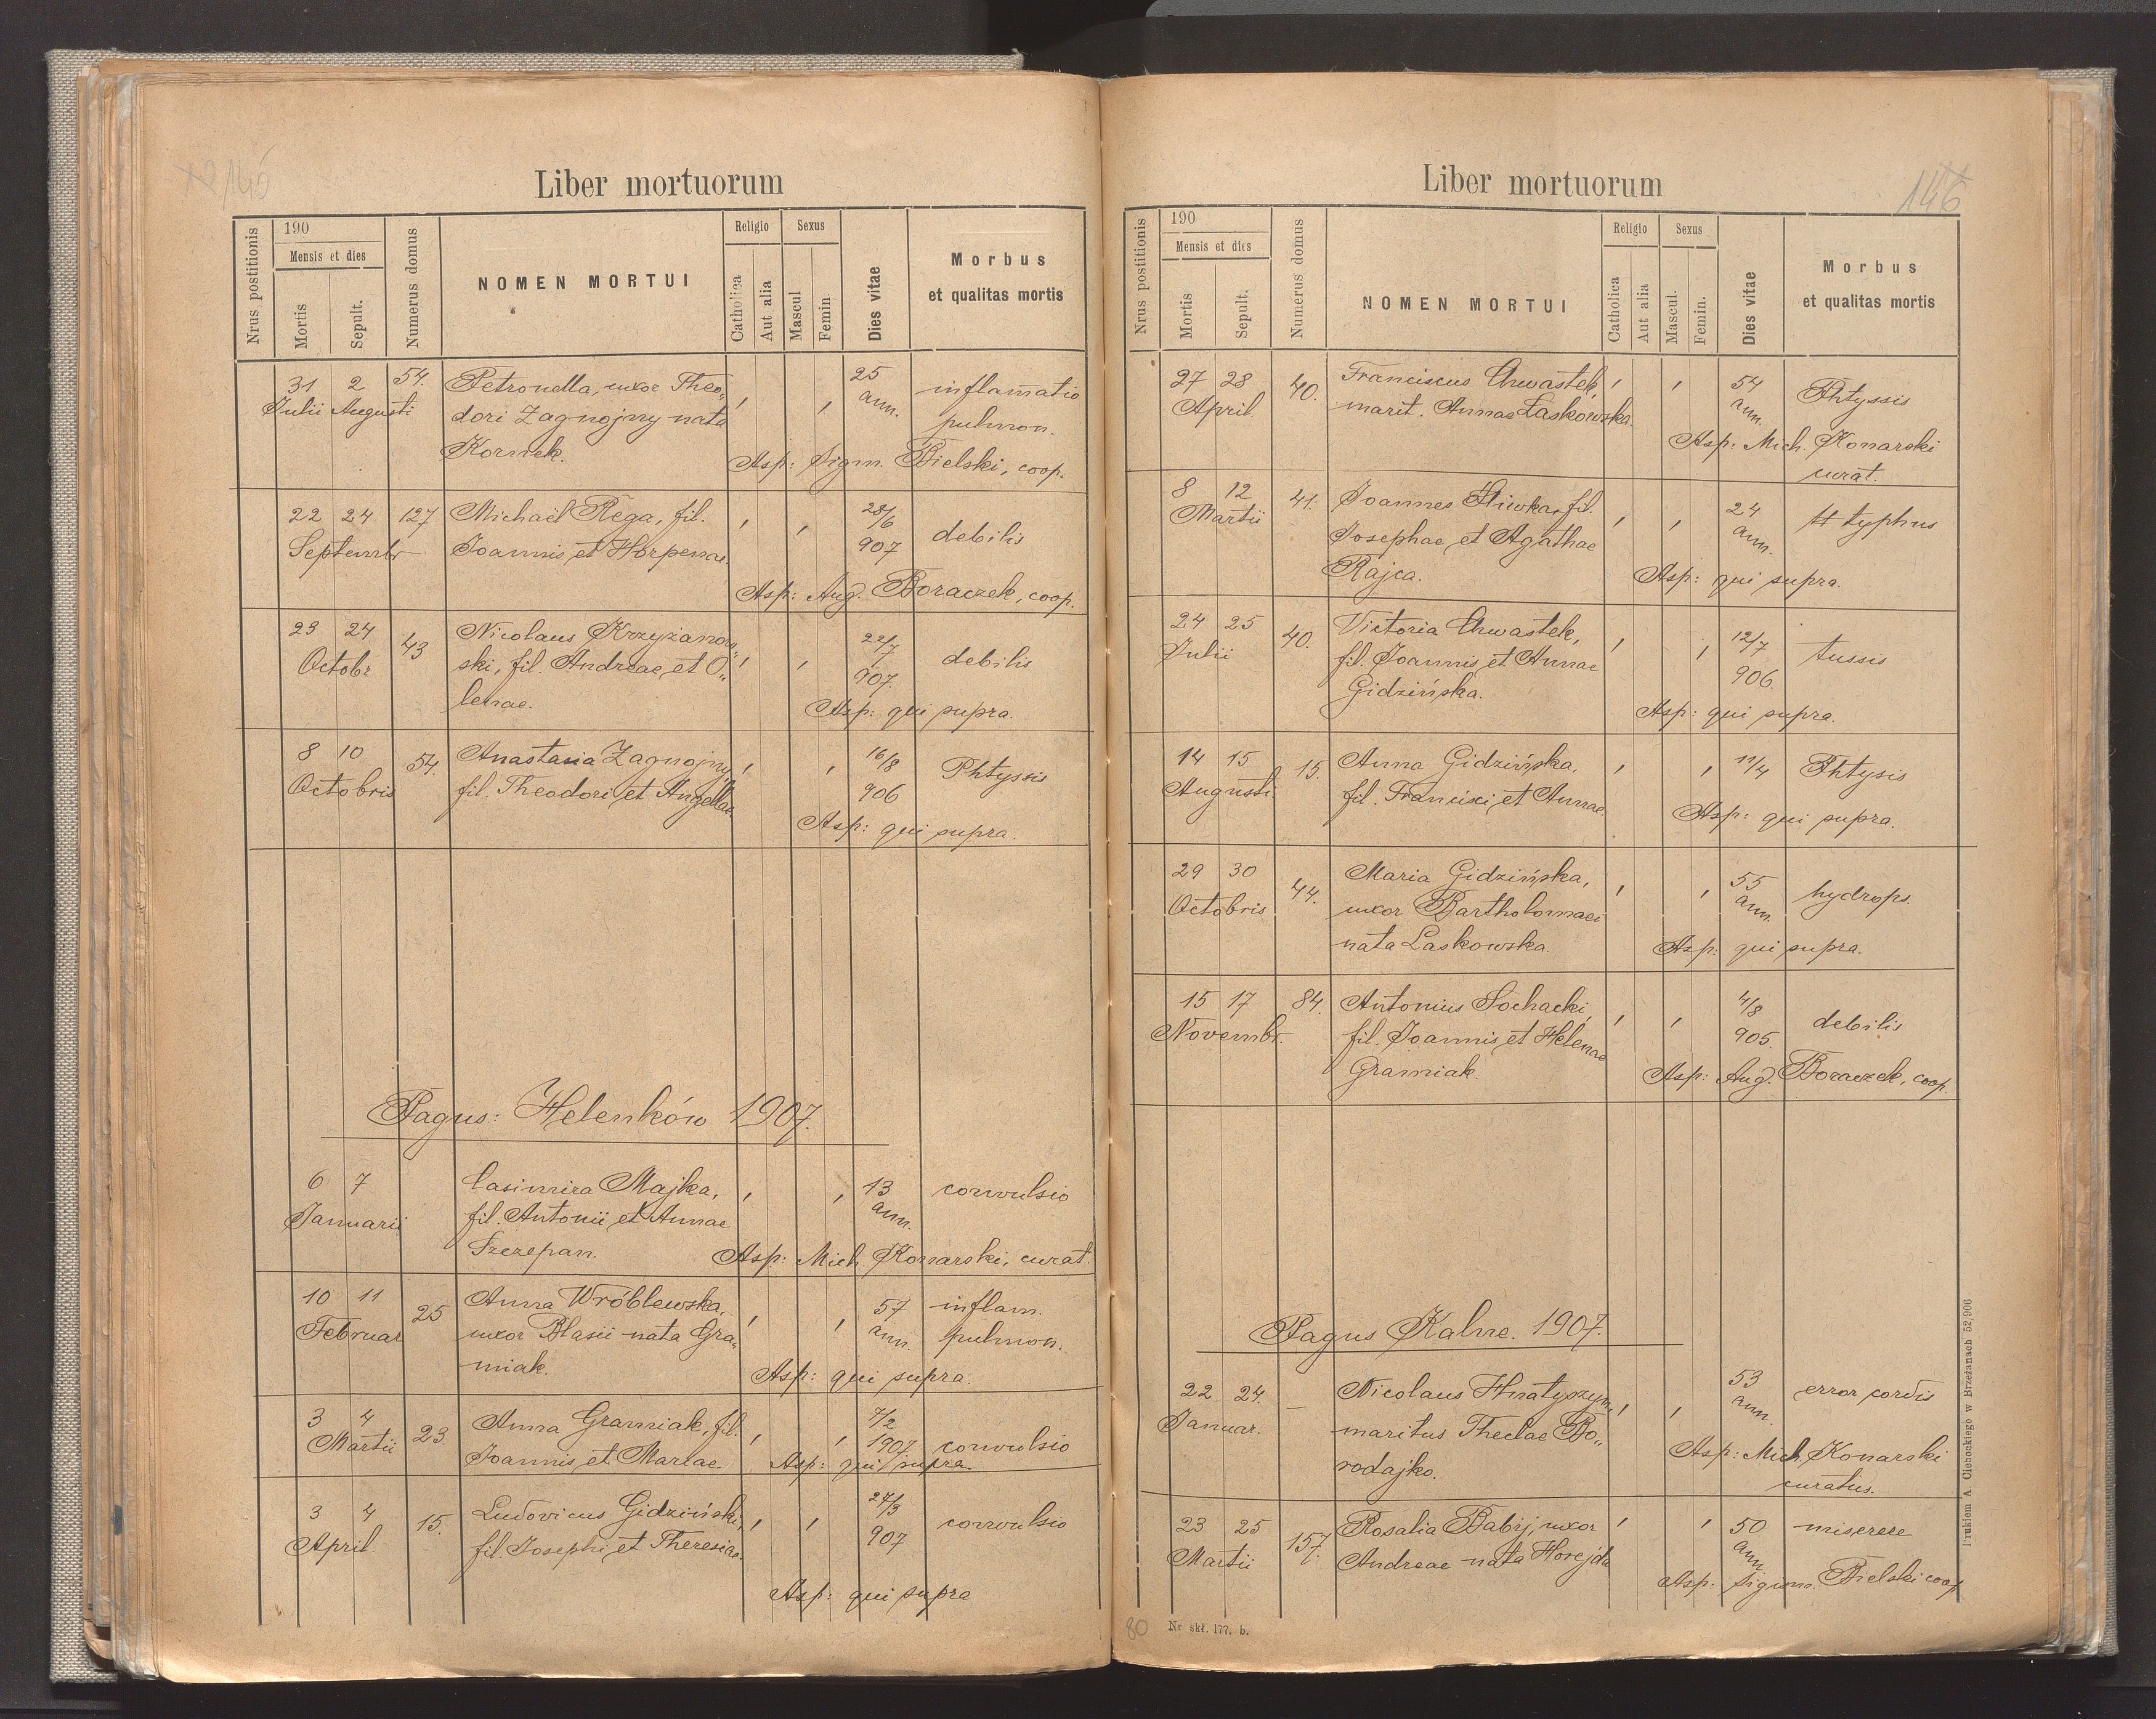 145
Liber mortuorum
Nrus postitionis
190
Mensis et dies
Mortis
Sepult.
Numerus domus
NOMEN MORTUI
Religio
Catholica
Aut alia
Sexus
Mascul
Femin.
Dies vitae
Morbus
et qualitas mortis
31 2 54. Petronella, uxor Theo„ 25 inflam̄atio
Julii Augusti dori Zagnojny nata ann. pulmon.
Kornek. Asp: Sigm. Bielski, coop.
22 24 127 Michaël Rega, fil. 28/6 debilis
Septembr Joannis et Horpenae. 907
Asp: Aug. Boraczek, coop.
23 24 43 Nicolaus Krzyżanow„ 22/7 debilis
Octobr ski, fil. Andreae et O„ 907.
lenae. Asp: qui supra.
8 10 54. Anastasia Zagnojny, 16/8 Phtyssis
Octobris fil. Theodori et Angellae. 906
Asp: qui supra.
Pagus: Helenków 1907.
6 7 Casimira Majka, 13 convulsio
Januarii fil. Antonii et Annae ann.
Szczepan. Asp: Mich. Konarski, curat.
10 11 25 Anna Wróblewska, 57 inflam.
Februar uxor Blasii nata Gra„ ann. pulmon.
niak. Asp: qui supra.
3 4 23. Anna Graniak, fil. 7/2 convulsio
Martii Joannis et Mariae. 1907.
Asp: qui supra
3 4 15. Ludovicus Gidziński, 27/3 convulsio
April. fil. Josephi et Theresiae. 907
Asp: qui supra
146
Liber mortuorum
Nrus postitionis
190
Mensis et dies
Mortis
Sepult.
Numerus domus
NOMEN MORTUI
Religio
Catholica
Aut alia
Sexus
Mascul.
Femin.
Dies vitae
Morbus
et qualitas mortis
27 28 40. Franciscus Chwastek, 54 Phtyssis
April. marit. Annae Łaskowska. ann.
Asp: Mich. Konarski
curat.
8 12 41. Joannes Śliwka, fil. 24 typhus
Martii Josephae et Agathae ann.
Rajca. Asp: qui supra.
24 25 40. Victoria Chwastek, 12/7 tussis
Julii fil. Joannis et Annae 906.
Gidzińska. Asp: qui supra.
14 15 15. Anna Gidzińska, 11/4 Phtysis
Augusti fil. Francisci et Annae.
Asp: qui supra.
29 30 44. Maria Gidzińska, 55 hydrops.
Octobris uxor Bartholomaei ann.
nata Laskowska. Asp: qui supra.
15 17 84. Antonius Sochacki, 4/8 debilis
Novembr. fil. Joannis et Helenae 905.
Graniak. Asp: Aug. Boraczek, coop.
Pagus Kalne. 1907.
22 24. — Nicolaus Hnatyszyn, 53 error cordis
Januar. maritus Theclae Bo„ ann.
rodajko. Asp: Mich. Konarski
curatus.
23 25 157. Rosalia Babij, uxor 50 miserere
Martii Andreae nata Horejda ann.
Asp: Sigism. Bielski coop
Drukiem A. Ciebockiego w Brzeżanach 52/906
80 Nr skł. 177. b.